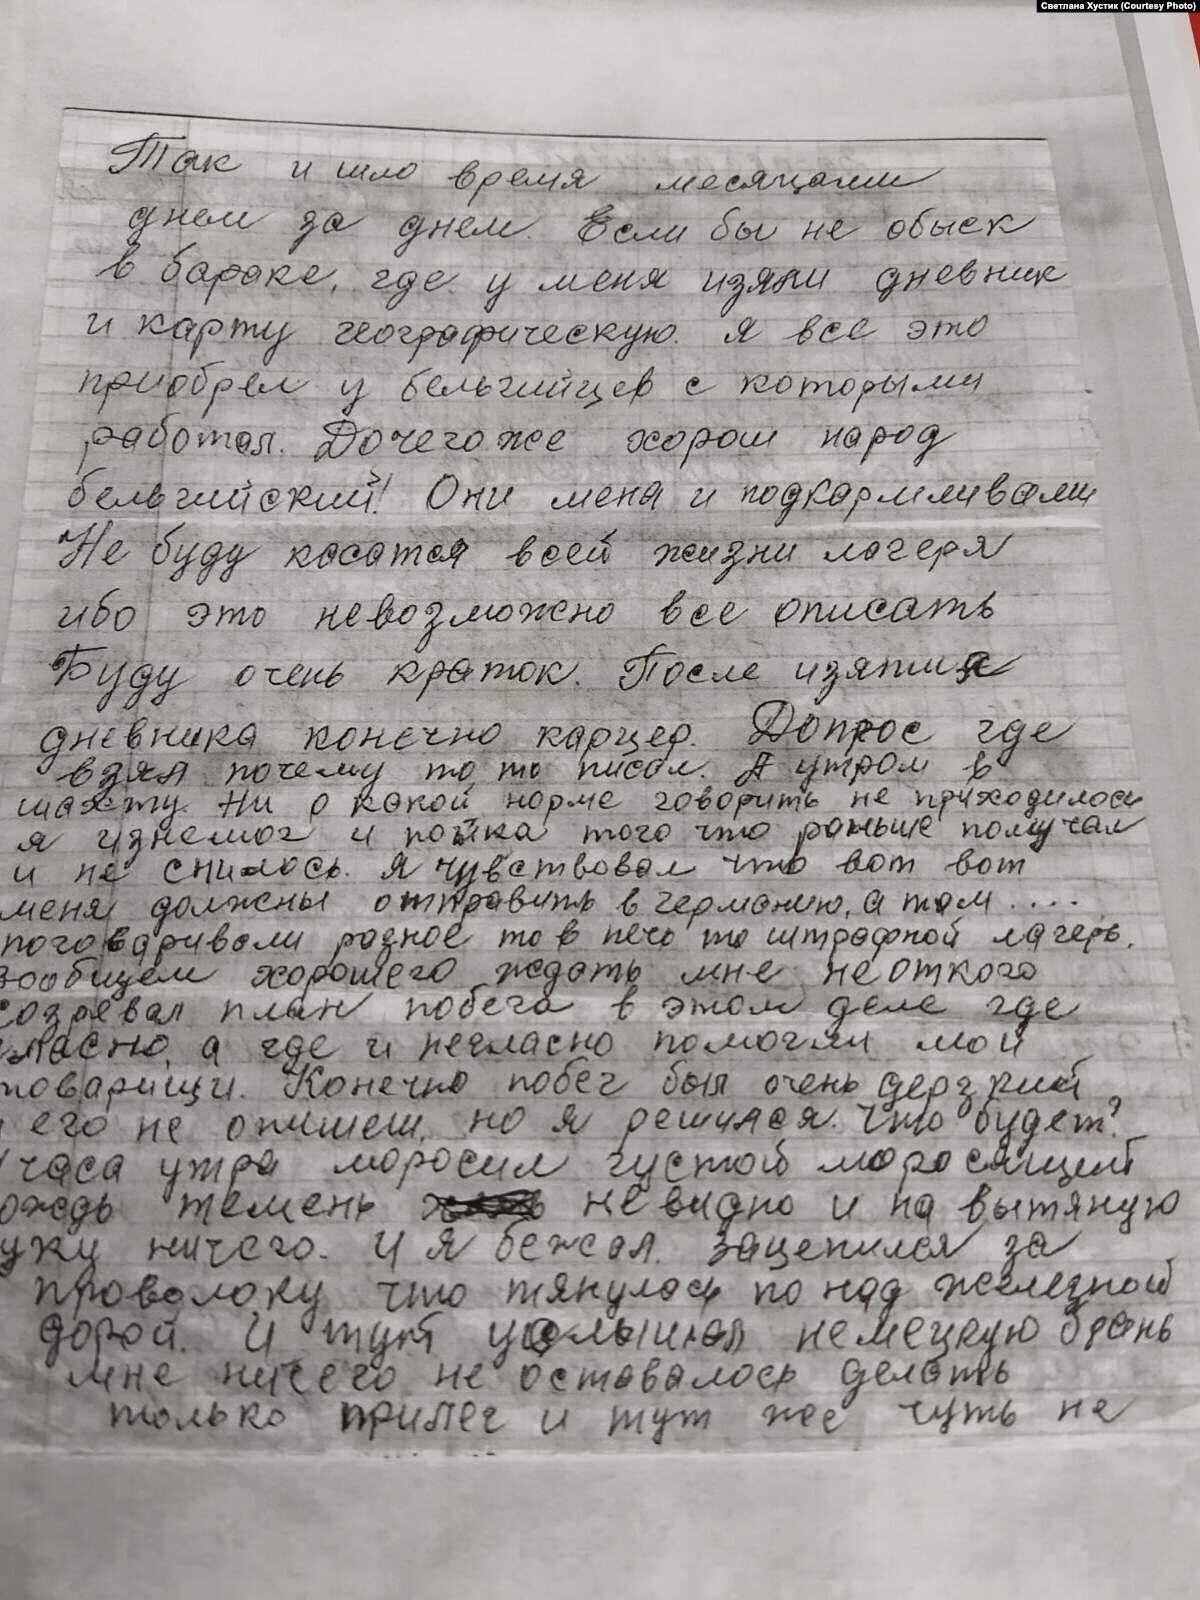 Светлана Хустик (Courtesy Photo)
Так и шло время месяцами
днем за днем. Если бы не обыск
в бараке, где у меня изяли дневник
и карту географическую. я все это
приобрел у бельгийцев с которыми
работал. Дочегоже хорош народ
бельгийский! Они меня и подкармливали
Не буду касатся всей жизни лагеря
ибо это невозможно все описать
Буду очень краток. После изятия
дневника конечно карцер. Допрос где
взял почему то то писал. А утром в
шахту. Ни о какой норме говорить не приходилось
я изнемог и пойка того что раньше получал
и не снилось. Я чувствовал что вот вот
меня должны отправить в германию, а там ....
поговаривали разное то в печь то штрафной лагерь.
вообщем хорошего ждать мне неоткого
созревал план побега в этом деле где
гласно, а где и негласно помогли мои
товарищи. Конечно побег был очень дерзкий
его не опишеш, но я решился. Что будет?
часа утра моросил густой моросящий
ождь темень не видно и на вытяную
уку ничего. И я бежал. Зацепился за
проволоку что тянулась по над железной
дорой. И тут услышал немецкую брань
мне ничего не оставалось делать
только прилег и тут же чуть не